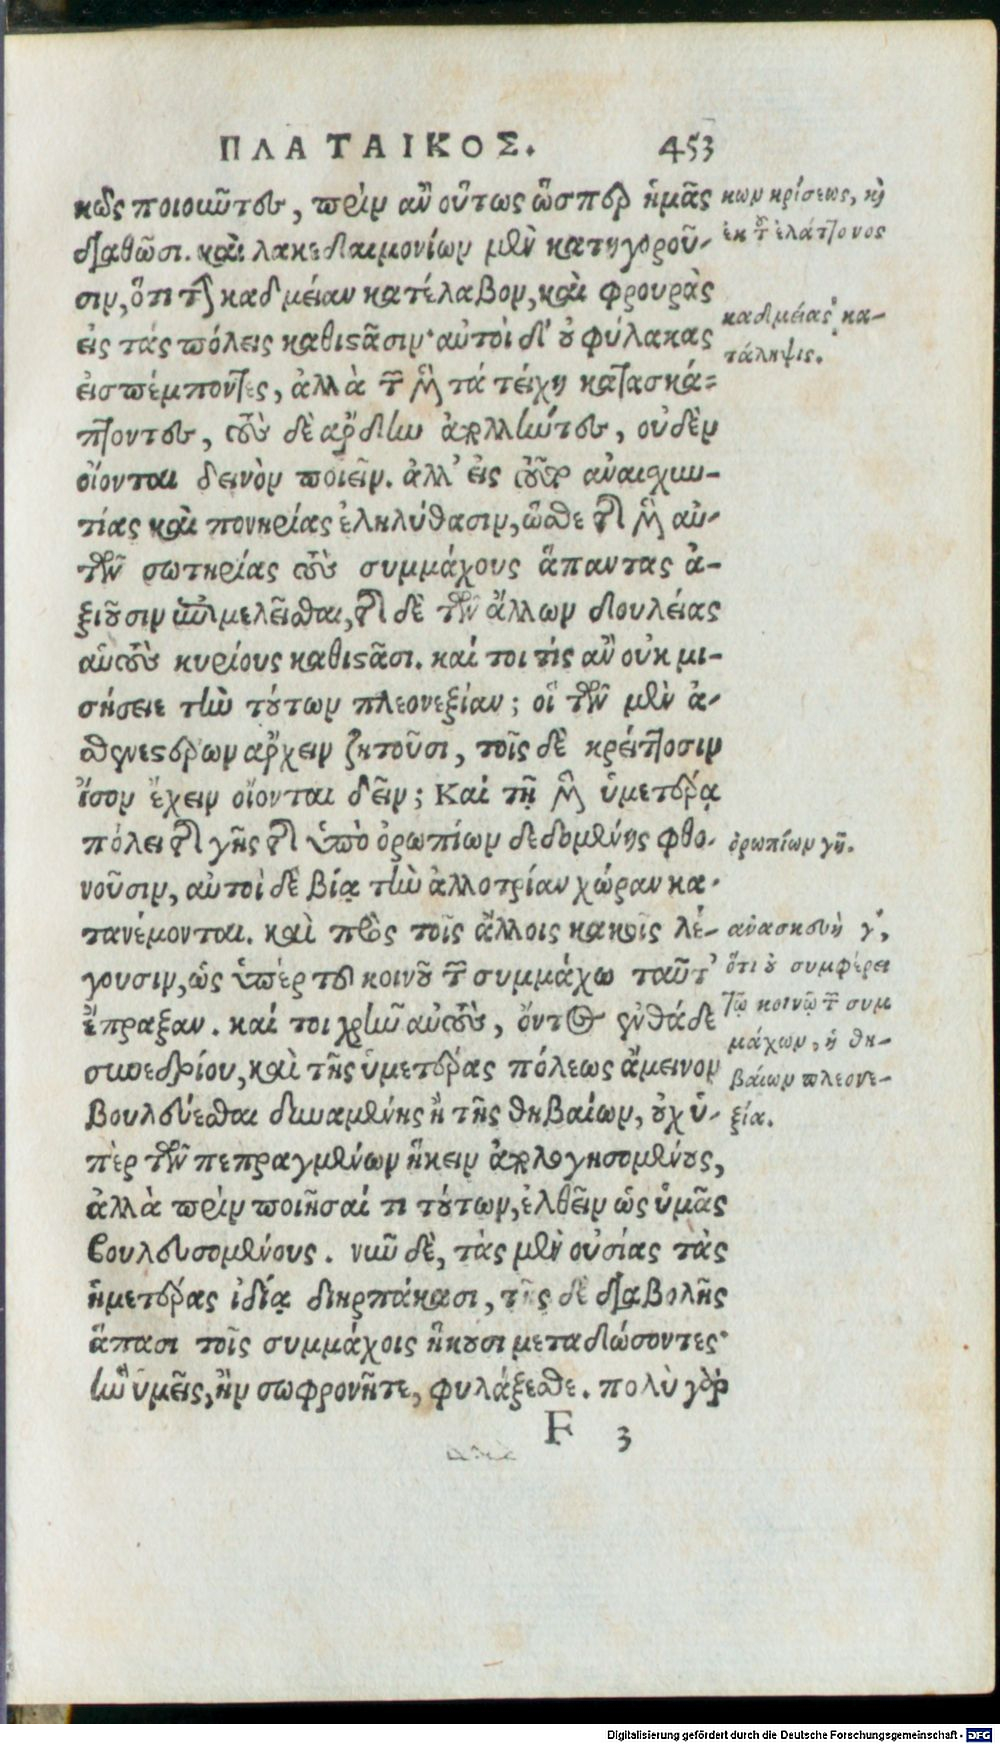 ΠΛΑΤΑΙΚΟΣ. 453
κῶς ποιοῦντες, πρὶν ἂν οὕτως ὥσπερ ἡμᾶς
διαθῶσι. καὶ λακεδαιμονίων μὲν κατηγοροῦ-
σιν, ὅτι τὴν καδμείαν κατέλαβον, καὶ φρουρὰς
εἰς τὰς πόλεις καθιστᾶσιν· αὐτοὶ δ' οὐ φύλακας
εἰσπέμποντες, ἀλλὰ τῶν μὲν τὰ τείχη κατασκά-
πτοντες, τοὺς δὲ ἄρδην ἀπολλύντες, οὐδὲν
οἴονται δεινὸν ποιεῖν. ἀλλ' εἰς τοῦτο ἀναισχυν-
τίας καὶ πονηρίας ἐληλύθασιν, ὥστε τῆς μὲν αὑ-
τῶν σωτηρίας τοὺς συμμάχους ἅπαντας ἀ-
ξιοῦσιν ἐπιμελεῖσθαι, τῆς δὲ τῶν ἄλλων δουλείας
αὑτοὺς κυρίους καθιστᾶσι. καί τοι τίς ἂν οὐκ μι-
σήσειε τὴν τούτων πλεονεξίαν; οἳ τῶν μὲν ἀ-
σθενεστέρων ἄρχειν ζητοῦσι, τοῖς δὲ κρείττοσιν
ἴσον ἔχειν οἴονται δεῖν; Καὶ τῇ μὲν ὑμετέρᾳ
πόλει τῆς γῆς τῆς ὑπὸ ὀρωπίων δεδομένης φθο-
νοῦσιν, αὐτοὶ δὲ βίᾳ τὴν ἀλλοτρίαν χώραν κα-
τανέμονται. καὶ πρὸς τοῖς ἄλλοις κακοῖς λέ-
γουσιν, ὡς ὑπὲρ τοῦ κοινοῦ τῶν συμμάχων ταῦτ'
ἔπραξαν. καί τοι χρῆν αὐτοὺς, ὄντος ἐνθάδε
συνεδρίου, καὶ τῆς ὑμετέρας πόλεως ἄμεινον
βουλεύεσθαι δυναμένης ἢ τῆς θηβαίων, οὐχ ὑ-
πὲρ τῶν πεπραγμένων ἥκειν ἀπολογησομένους,
ἀλλὰ πρὶν ποιῆσαί τι τούτων, ἐλθεῖν ὡς ὑμᾶς
βουλευσομένους. νῦν δὲ, τὰς μὲν οὐσίας τὰς
ἡμετέρας ἰδίᾳ διηρπάκασι, τῆς δὲ διαβολῆς
ἅπασι τοῖς συμμάχοις ἥκουσι μεταδώσοντες·
ἣν ὑμεῖς, ἢν σωφρονῆτε, φυλάξεσθε. πολὺ γὰρ
F 3
κων κρίσεως, καὶ
ἐκ τοῦ ἐλάττονος
καδμείας κα-
τάληψις.
ὀρωπίων γῆ.
ἀνασκευὴ γʹ,
ὅτι οὐ συμφέρει
τῷ κοινῷ τῶν συμ
μάχων, ἡ θη-
βαίων πλεονε-
ξία.
Digitalisierung gefördert durch die Deutsche Forschungsgemeinschaft - DFG